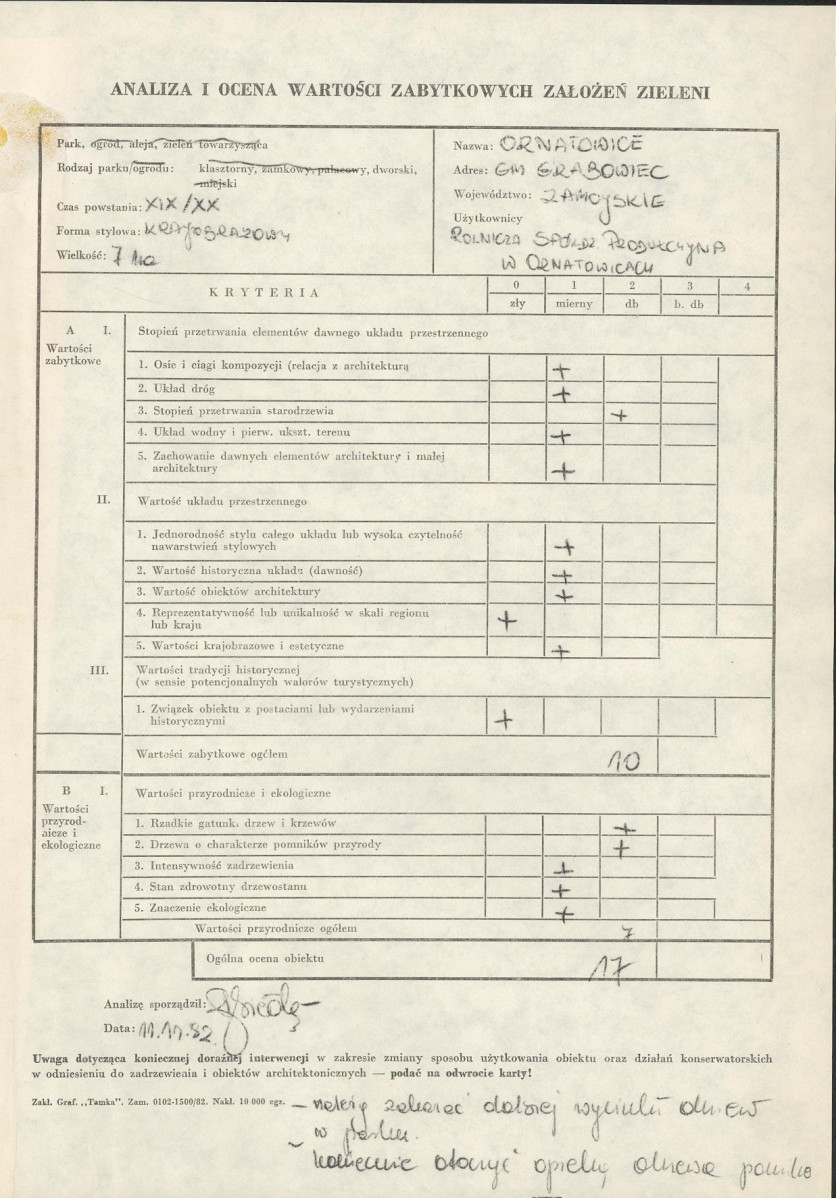 ANALIZA I OCENA WARTOŚCI ZABYTKOWYCH ZAŁOŻEŃ ZIELENI
Park, ogród, aleja, zieleń towarzysząca
Rodzaj parku/ogrodu: klasztorny, zamkowy, pałacowy, dworski,
miejski
Czas powstania: XIX/XX
Forma stylowa: KRAJOBRAZOWY
Wielkość: 7 ha
Nazwa: ORNATOWICE
Adres: GM GRABOWIEC
Województwo: ZAMOJSKIE
Użytkownicy
ROLNICZA SPÓŁDZ. PRODUKCYJNA
W ORNATOWICACH
KRYTERIA
0 1 2 3 4
zły mierny db b. db
A I. Stopień przetrwania elementów dawnego układu przestrzennego
Wartości
zabytkowe
1. Osie i ciągi kompozycji (relacja z architekturą +
2. Układ dróg +
3. Stopień przetrwania starodrzewia +
4. Układ wodny i pierw. ukszt. terenu +
5. Zachowanie dawnych elementów architektury i małej
architektury +
II. Wartość układu przestrzennego
1. Jednorodność stylu całego układu lub wysoka czytelność
nawarstwień stylowych +
2. Wartość historyczna układu (dawność) +
3. Wartość obiektów architektury +
4. Reprezentatywność lub unikalność w skali regionu
lub kraju +
5. Wartości krajobrazowe i estetyczne +
III. Wartości tradycji historycznej
(w sensie potencjonalnych walorów turystycznych)
1. Związek obiektu z postaciami lub wydarzeniami
historycznymi +
Wartości zabytkowe ogółem 10
B I. Wartości przyrodnicze i ekologiczne
Wartości
przyrod-
nicze i
ekologiczne
1. Rzadkie gatunki drzew i krzewów +
2. Drzewa o charakterze pomników przyrody +
3. Intensywność zadrzewienia +
4. Stan zdrowotny drzewostanu +
5. Znaczenie ekologiczne +
Wartości przyrodnicze ogółem 7
Ogólna ocena obiektu 17
Analizę sporządził:
Data: 11.11.82
Uwaga dotycząca koniecznej doraźnej interwencji w zakresie zmiany sposobu użytkowania obiektu oraz działań konserwatorskich
w odniesieniu do zadrzewienia i obiektów architektonicznych — podać na odwrocie karty!
Zakł. Graf. „Tamka". Zam. 0102-1500/82. Nakł. 10 000 egz.
– należy zakazać dalszej wycinki drzew
w parku.
– koniecznie otoczyć opieką drzewa